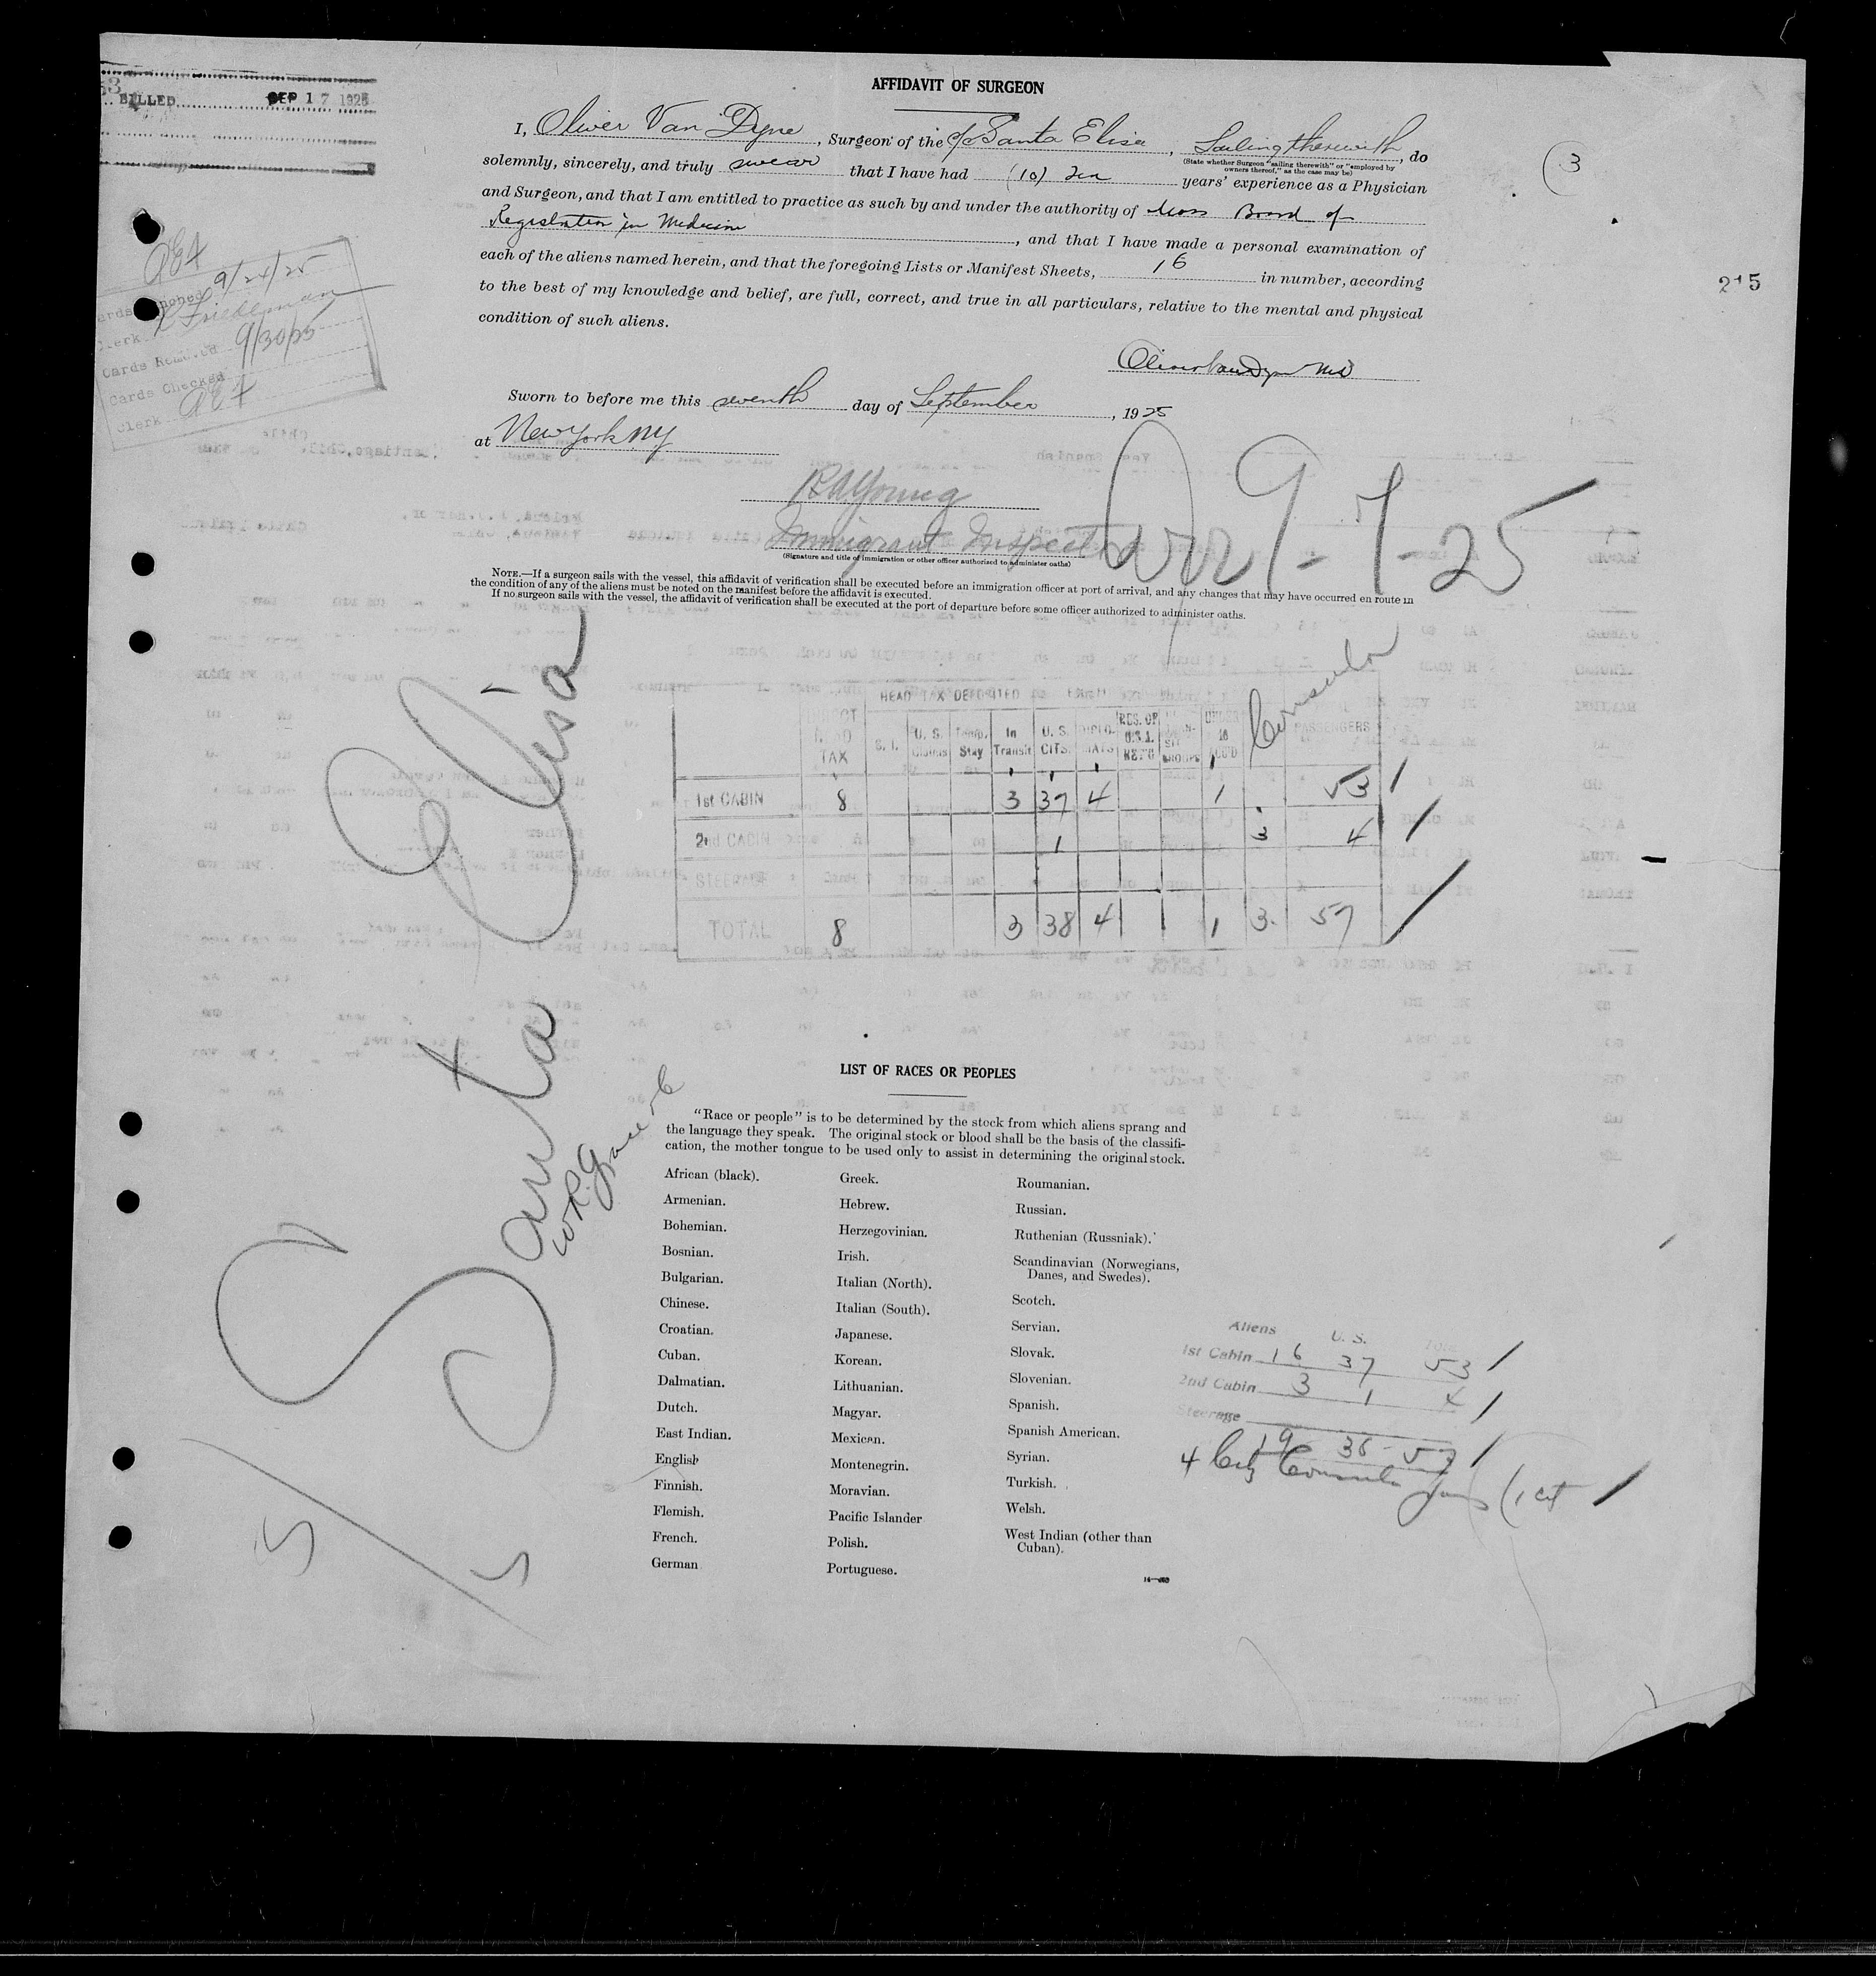 BILLED SEP 17 1925
AFFIDAVIT OF SURGEON
I, Oliver Van Dyne, Surgeon of the S/S Santa Elisa, Sailing therewith, do
(State whether Surgeon "sailing therewith" or "employed by
owners thereof," as the case may be)
3
solemnly, sincerely, and truly swear that I have had (10) Ten years' experience as a Physician
and Surgeon, and that I am entitled to practice as such by and under the authority of Mass Board of
Registration in Medicine, and that I have made a personal examination of
each of the aliens named herein, and that the foregoing Lists or Manifest Sheets, 16 in number, according
to the best of my knowledge and belief, are full, correct, and true in all particulars, relative to the mental and physical
condition of such aliens.
215
9/24/25
Friedman
Clerk
Cards Checked 9/30/25
Clerk
Oliver Van Dyne MD
Sworn to before me this seventh day of September, 1925
at New York NY
R A Young
Immigrant Inspector
(Signature and title of immigration or other officer authorized to administer oaths)
9-7-25
NOTE.—If a surgeon sails with the vessel, this affidavit of verification shall be executed before an immigration officer at port of arrival, and any changes that may have occurred en route in
the condition of any of the aliens must be noted on the manifest before the affidavit is executed.
If no surgeon sails with the vessel, the affidavit of verification shall be executed at the port of departure before some officer authorized to administer oaths.
Santa Elisa
W.R. Grace & Co
HEAD TAX DEPOSITED
HEAD TAX S. I. U. S. Temp. Stay In Transit U. S. CITS. DIPLOMATS RES. OF U.S.A. RET'G UNDER 16 Consular PASSENGERS
1st CABIN 8 3 37 4 1 53
2nd CABIN 1 3 4
STEERAGE
TOTAL 8 3 38 4 1 3 57
LIST OF RACES OR PEOPLES
"Race or people" is to be determined by the stock from which aliens sprang and
the language they speak. The original stock or blood shall be the basis of the classifi-
cation, the mother tongue to be used only to assist in determining the original stock.
African (black).
Armenian.
Bohemian.
Bosnian.
Bulgarian.
Chinese.
Croatian.
Cuban.
Dalmatian.
Dutch.
East Indian.
English
Finnish.
Flemish.
French.
German
Greek.
Hebrew.
Herzegovinian.
Irish.
Italian (North).
Italian (South).
Japanese.
Korean.
Lithuanian.
Magyar.
Mexican.
Montenegrin.
Moravian.
Pacific Islander
Polish.
Portuguese.
Roumanian.
Russian.
Ruthenian (Russniak).
Scandinavian (Norwegians,
Danes, and Swedes).
Scotch.
Servian.
Slovak.
Slovenian.
Spanish.
Spanish American.
Syrian.
Turkish.
Welsh.
West Indian (other than
Cuban).
Aliens U. S. Total
1st Cabin 16 37 53
2nd Cabin 3 1 4
Steerage
19 38 57